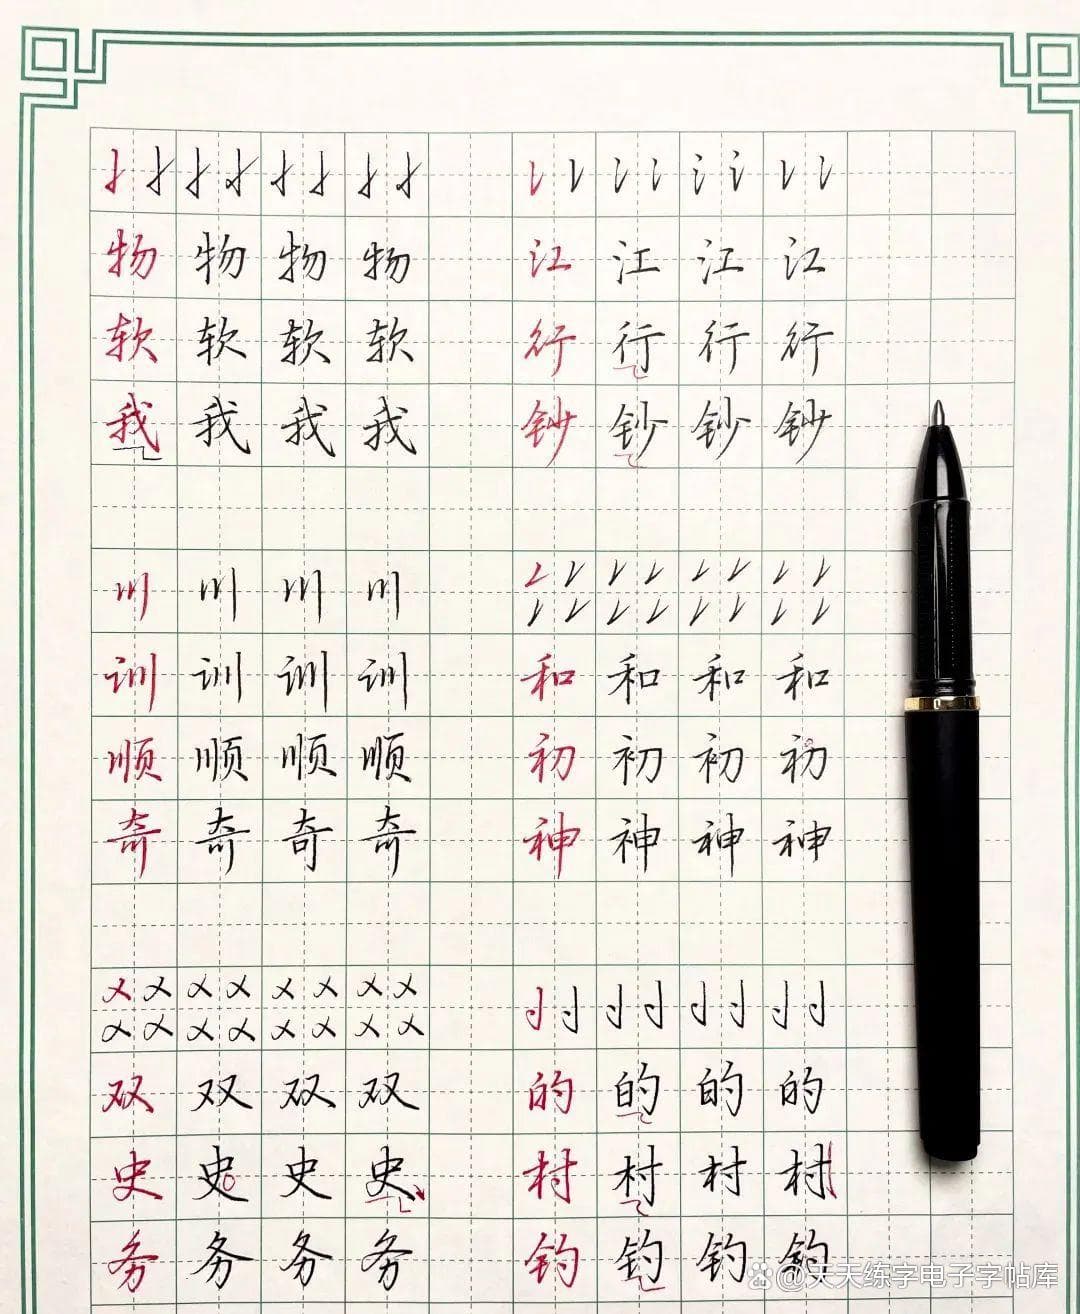 物 物 物 物
软 软 软 软
我 我 我 我
川 川 川 川
训 训 训 训
顺 顺 顺 顺
奇 奇 奇 奇
双 双 双 双
史 史 史 史
务 务 务 务
江 江 江 江
行 行 行 行
钞 钞 钞 钞
和 和 和 和
初 初 初 初
神 神 神 神
的 的 的 的
村 村 村 村
钓 钓 钓 钓
@天天练字电子字帖库